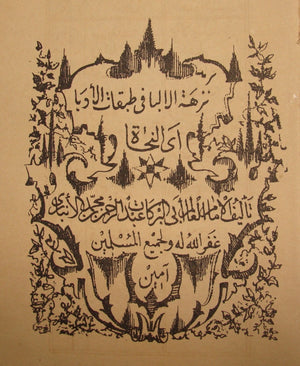 نزهة الالبا فى طبقات الأدبا
أى النحاة
تأليف الامام العالم أبى البركات عبد الرحمن بن محمد الانبارى
غفر الله له ولجميع المسلمين
آمين